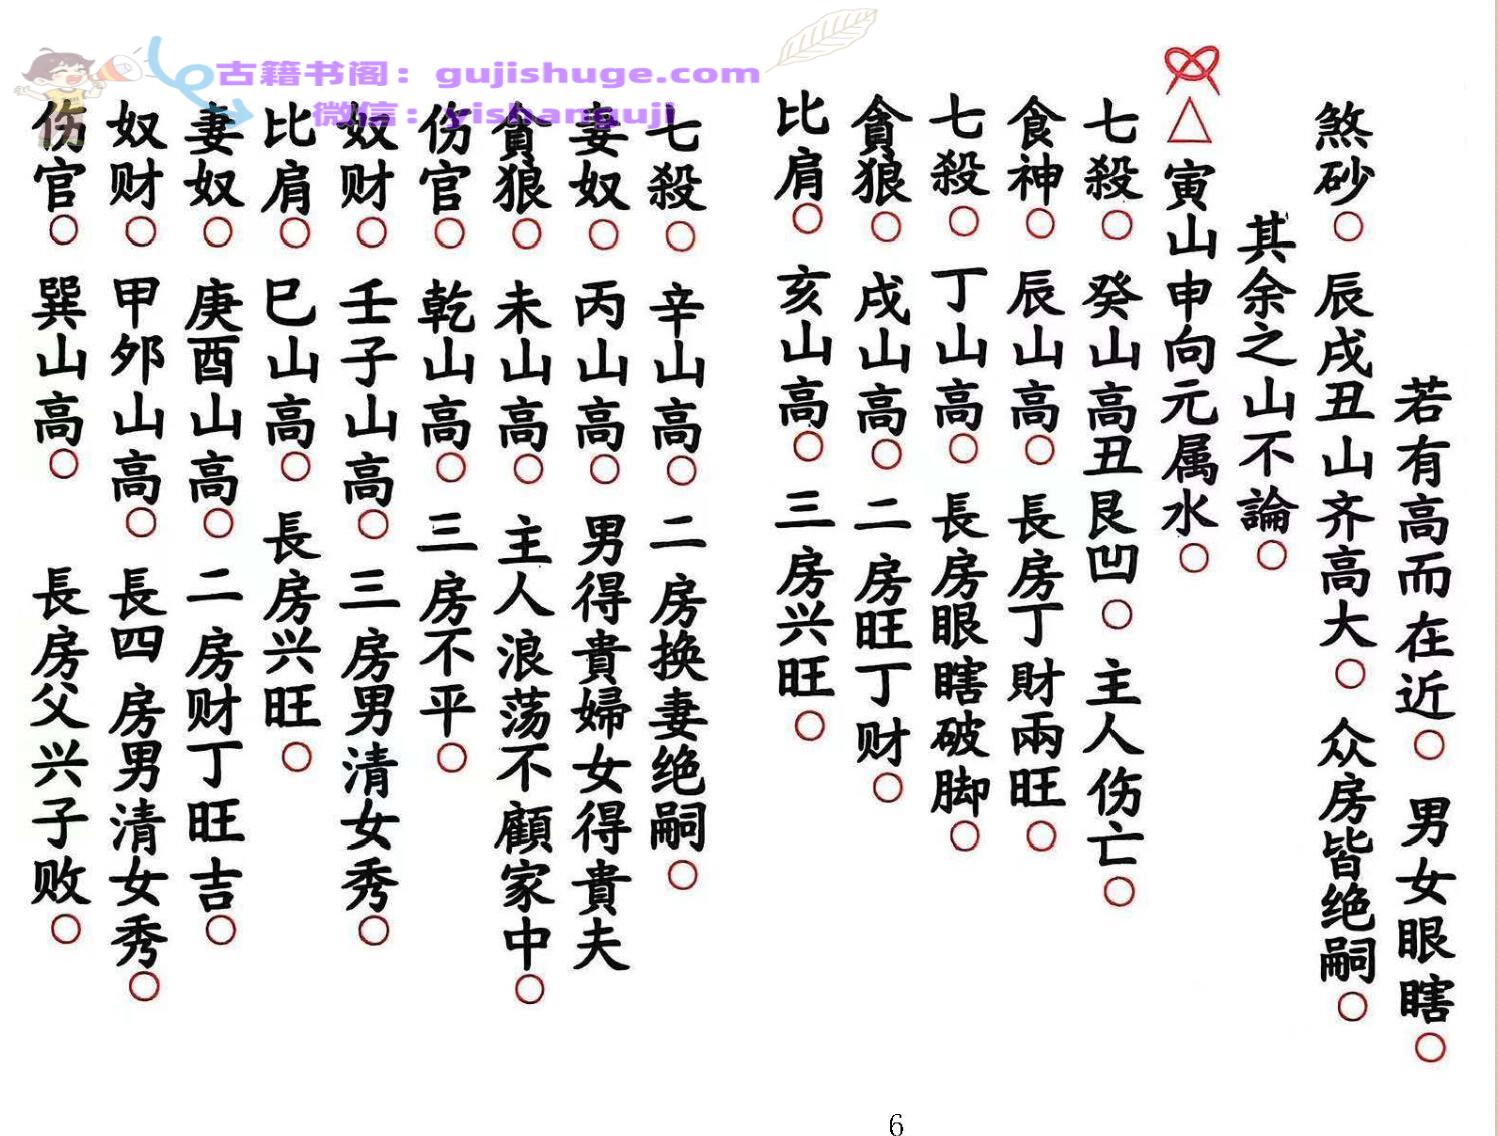 古籍书阁：gujishuge.com
微信：yishanguji
若有高而在近○ 男女眼瞎○
煞砂○ 辰戌丑山齐高大○ 众房皆绝嗣○
其余之山不論○
△寅山申向元属水○
七殺○ 癸山高丑艮凹○ 主人伤亡○
食神○ 辰山高○ 長房丁財兩旺○
七殺○ 丁山高○ 長房眼瞎破脚○
貪狼○ 戌山高○ 二房旺丁财○
比肩○ 亥山高○ 三房兴旺○
七殺○ 辛山高○ 二房换妻绝嗣○
妻奴○ 丙山高○ 男得貴婦女得貴夫
貪狼○ 未山高○ 主人浪荡不顧家中○
伤官○ 乾山高○ 三房不平○
奴财○ 壬子山高○ 三房男清女秀○
比肩○ 巳山高○ 長房兴旺○
妻奴○ 庚酉山高○ 二房财丁旺吉○
奴财○ 甲夘山高○ 長四房男清女秀○
伤官○ 巽山高○ 長房父兴子败○
6